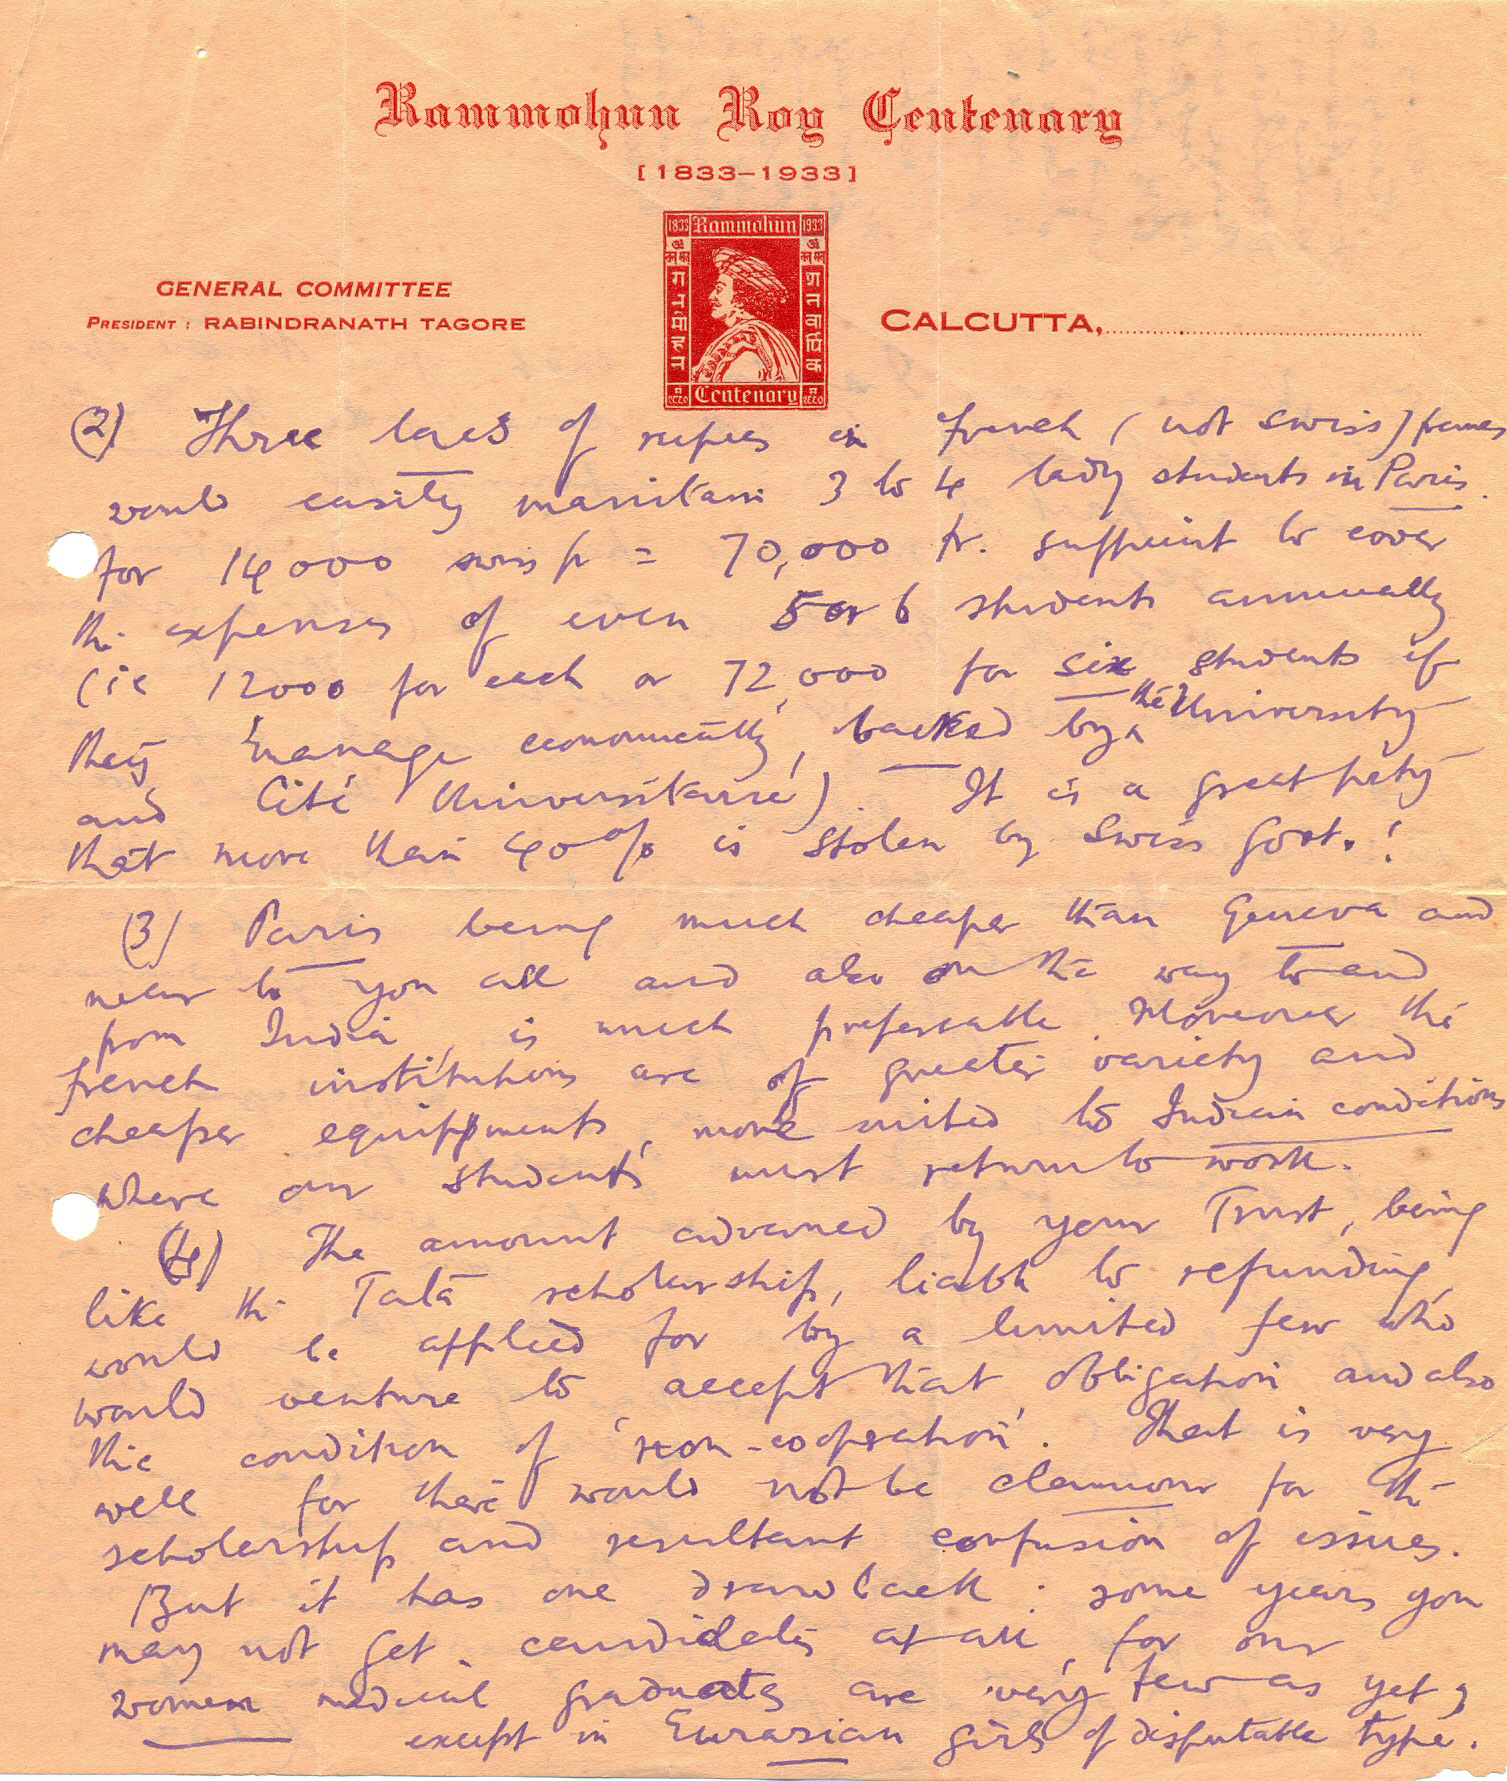 Rammohun Roy Centenary
[1833–1933]
1833 Rammohun 1933
ॐ
तत् सत्
ॐ
तत् सत्
राममोहन
शतवार्षिक
Centenary
GENERAL COMMITTEE
PRESIDENT : RABINDRANATH TAGORE
CALCUTTA,
(2) Three lacs of rupees in french (not swiss) francs
would easily maintain 3 to 4 lady students in Paris.
for 14000 swis fr = 70,000 fr. sufficient to cover
the expenses of even 5 or 6 students annually
(ie 12000 for each or 72,000 for six students if
they manage economically, backed by the University
and Cité Universitaire). It is a great pity
that more than 40% is stolen by Swiss Govt.!
(3) Paris being much cheaper than Geneva and
near to you all and also on the way to and
from India, is much preferable. Moreover the
french institutions are of greater variety and
cheaper equippments, more suited to Indian conditions
where our students must return to work.
(4) The amount advanced by your Trust, being
like the Tata scholarship, liable to refunding,
would be applied for by a limited few who
would venture to accept that obligation and also
the condition of 'non-cooperation'. That is very
well for there would not be clamour for the
scholarship and resultant confusion of issues.
But it has one drawback: some years you
may not get candidates at all, for our
women medical graduates are very few as yet,
except in Eurasian girls of disputable type.